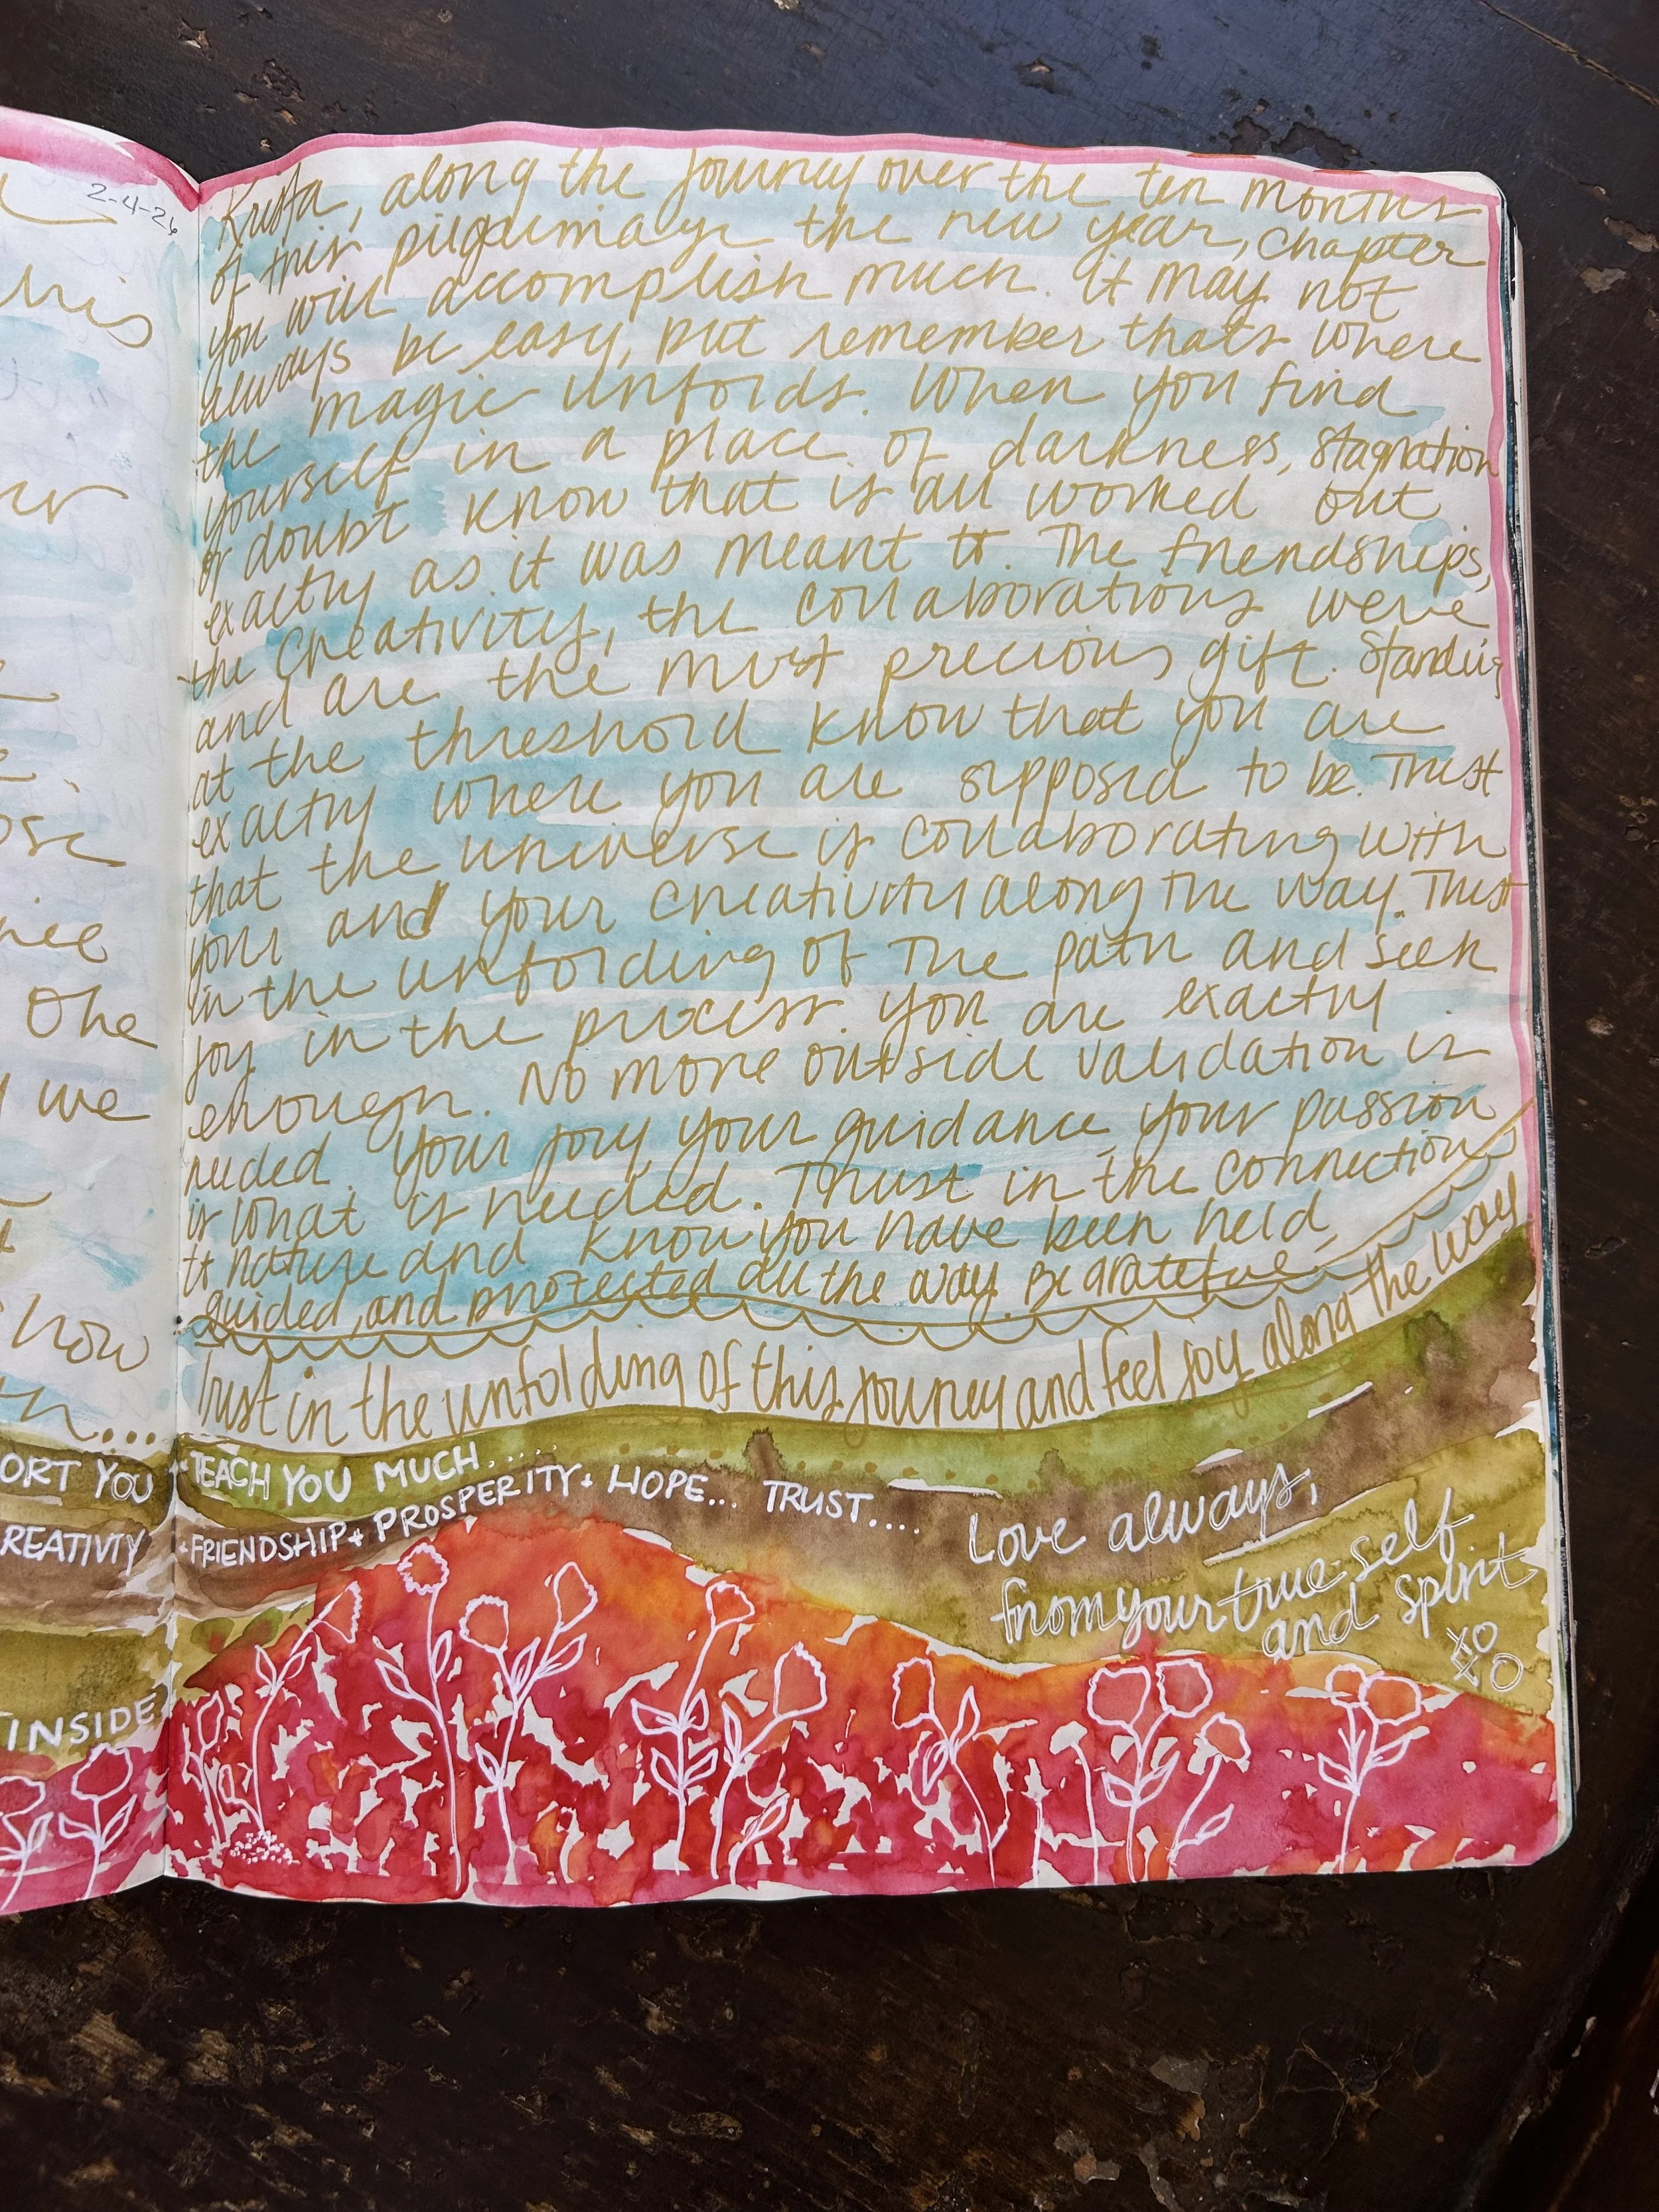 2-4-26
Krista, along the journey over the ten months
of this pilgrimage the new year, chapter
you will accomplish much. it may not
always be easy, but remember thats where
the magic unfolds. When you find
yourself in a place of darkness, stagnation
or doubt know that is all worked out
exactly as it was meant to. The friendships,
the creativity, the collaborations were
and are the most precious gift. Standing
at the threshold know that you are
exactly where you are supposed to be. Trust
that the universe is collaborating with
your and your creativity along the way. Trust
in the unfolding of the path and seek
joy in the process. you are exactly
enough. No more outside validation is
needed. your joy, your guidance, your passion
is what is needed. Trust in the connection
to nature and know you have been held,
guided, and protected all the way. Be grateful
Trust in the unfolding of this journey and feel joy along the way
+ TEACH YOU MUCH.....
+ FRIENDSHIP + PROSPERITY + HOPE... TRUST....
Love always,
from your true self
and spirit
XO
XO
his
One
we
how
...
ORT YOU
REATIVITY
INSIDE